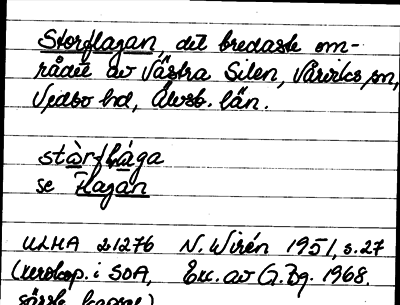 Storflagan, det bredaste om-
rådet av Västra Silen, Vårviks sn,
Vedbo hd, Älvsb. län.
stòrflàga
se Flagan
ULMA 21276 N. Wirén 1951, s. 27
(xerokop. i SOA, Exc. av G. Bg. 1968.
särsk. kapsel)